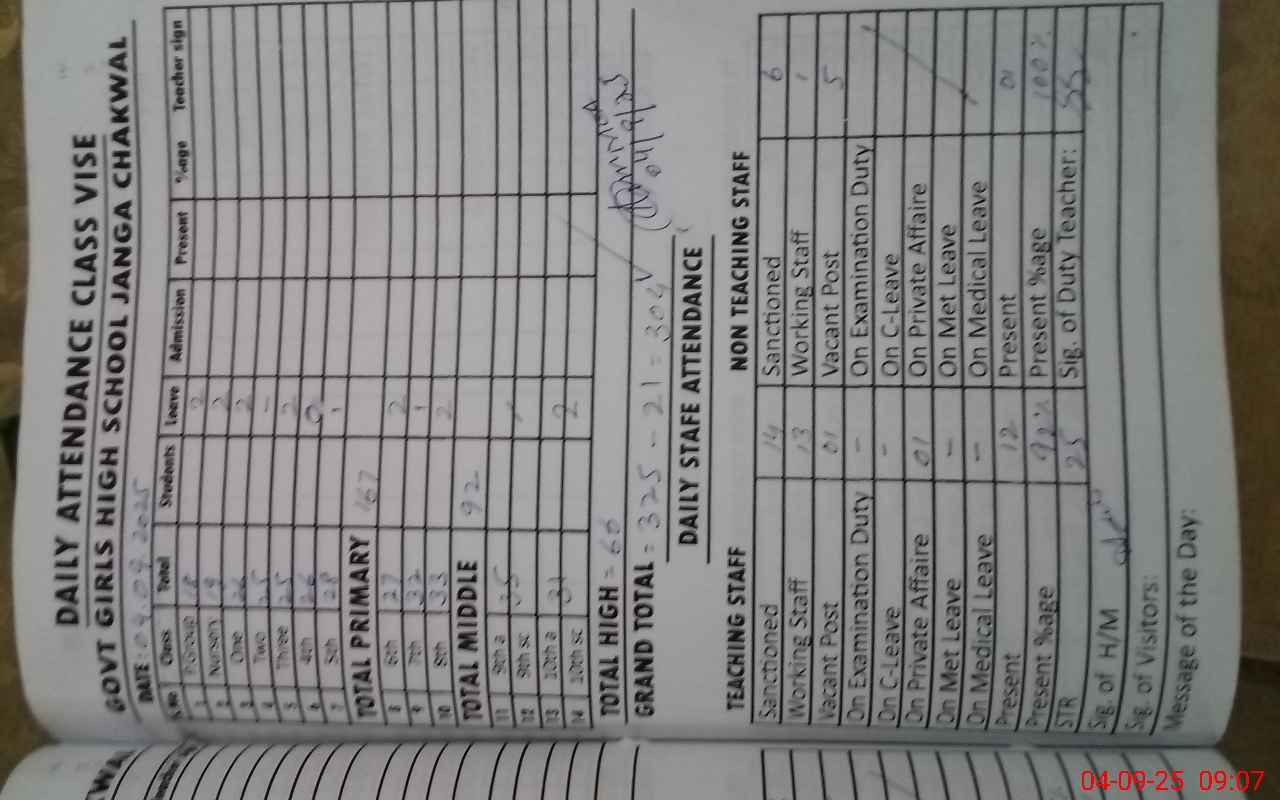 DAILY ATTENDANCE CLASS VISE
GOVT GIRLS HIGH SCHOOL JANGA CHAKWAL
DATE: 04.09.2025
S.No Class Total Students Leave Admission Present %age Teacher sign
1 P.Group 18 2
2 Nursery 19 2
3 One 26 2
4 Two 25 -
5 Three 25 2
6 4th 26 0
7 5th 28 1
TOTAL PRIMARY 167
8 6th 27 2
9 7th 32 1
10 8th 33 2
TOTAL MIDDLE 92
11 9th a
12 9th sc 35 1
13 10th a
14 10th sc 31 2
TOTAL HIGH = 66
GRAND TOTAL = 325 - 21 = 304
04/9/25
DAILY STAFE ATTENDANCE
TEACHING STAFF NON TEACHING STAFF
Sanctioned 14 Sanctioned 6
Working Staff 13 Working Staff 1
Vacant Post 01 Vacant Post 5
On Examination Duty - On Examination Duty
On C-Leave - On C-Leave
On Private Affaire 01 On Private Affaire
On Met Leave - On Met Leave
On Medical Leave - On Medical Leave
Present 12 Present 01
Present %age 92% Present %age 100%
STR 25 Sig. of Duty Teacher:
Sig. of H/M
Sig. of Visitors:
Message of the Day:
KWAL
04-09-25 09:07